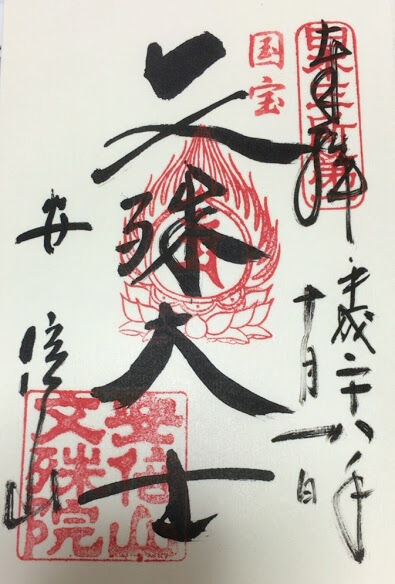 奉拝
平成二十八年
十月一日
国宝
文殊大士
安倍山
安倍山
文殊院